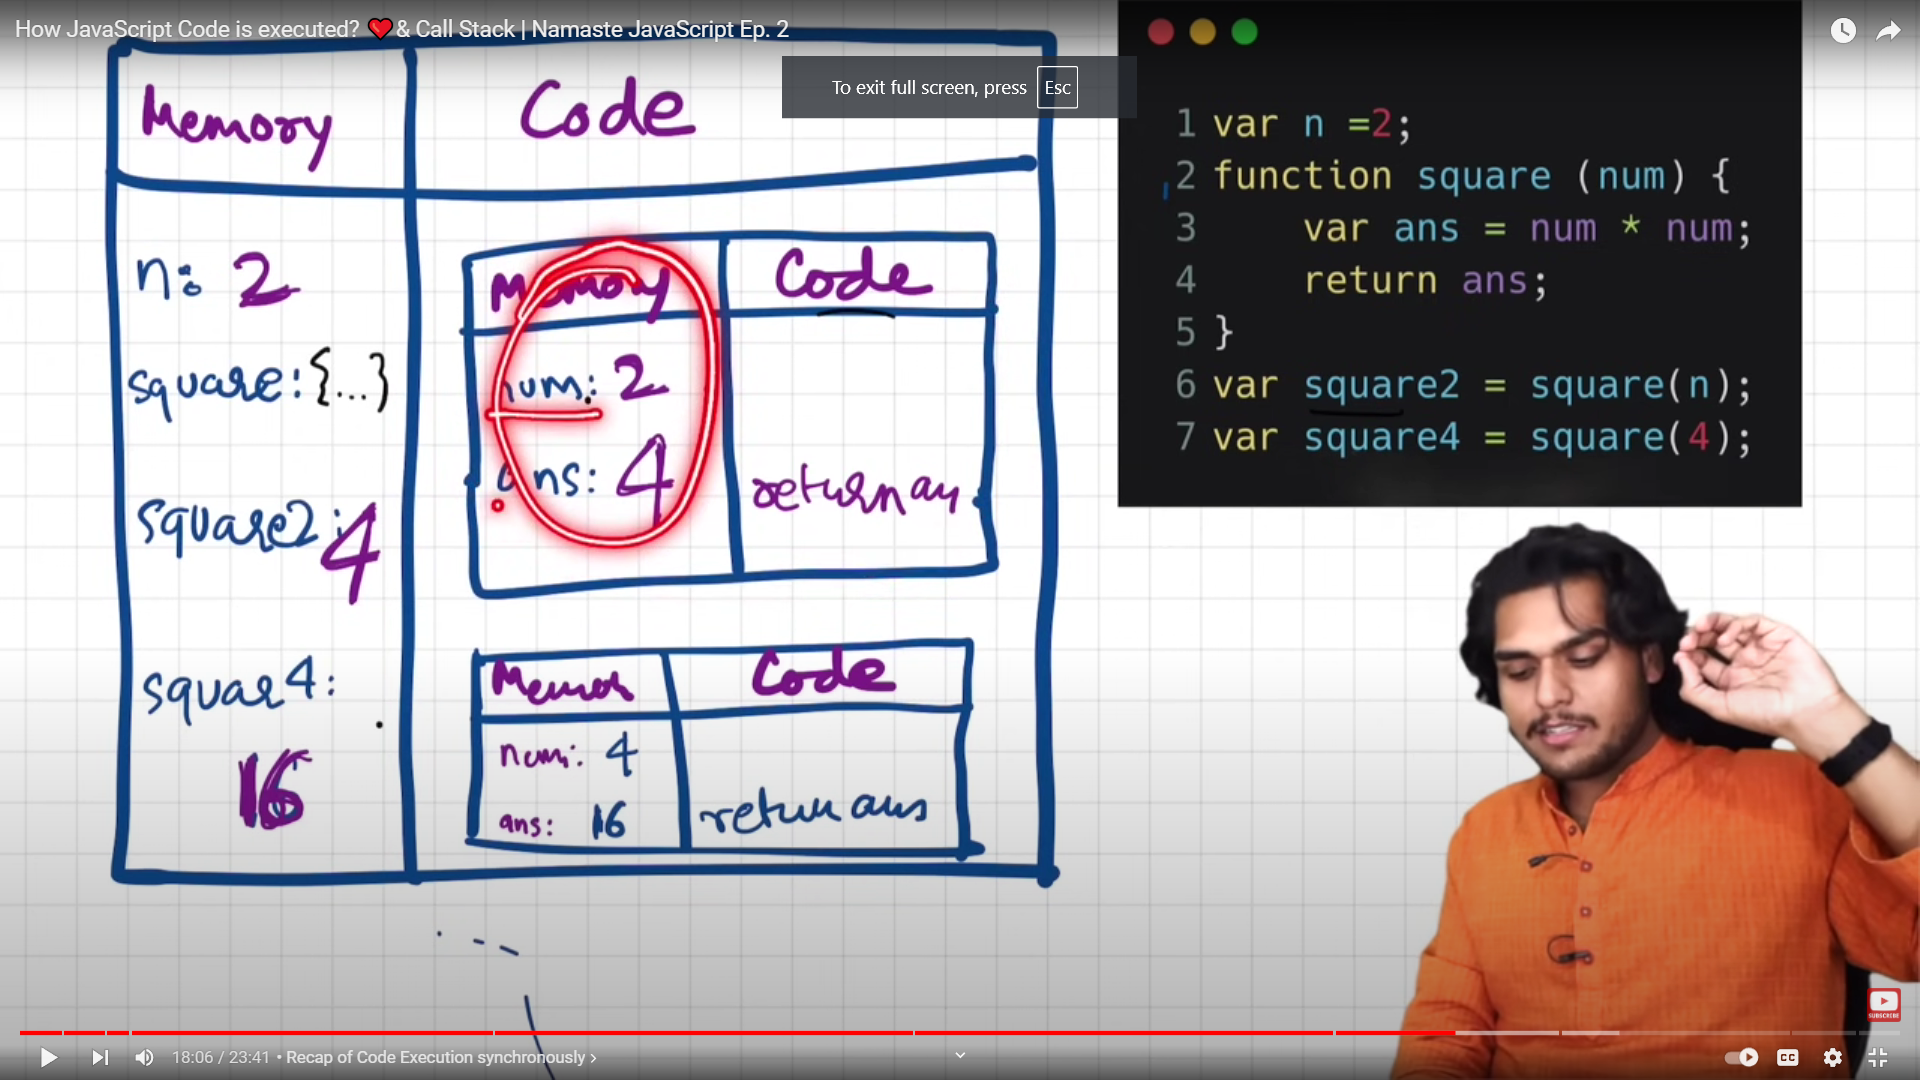 How JavaScript Code is executed? ❤️ & Call Stack | Namaste JavaScript Ep. 2
To exit full screen, press Esc
Memory Code
n: 2
square: {...}
square2: 4
squar4:
16
Memory Code
num: 2
ans: 4
return an
Memor Code
num: 4
ans: 16
return ans
1 var n =2;
2 function square (num) {
3 var ans = num * num;
4 return ans;
5 }
6 var square2 = square(n);
7 var square4 = square(4);
SUBSCRIBE
18:06 / 23:41 • Recap of Code Execution synchronously ›
CC